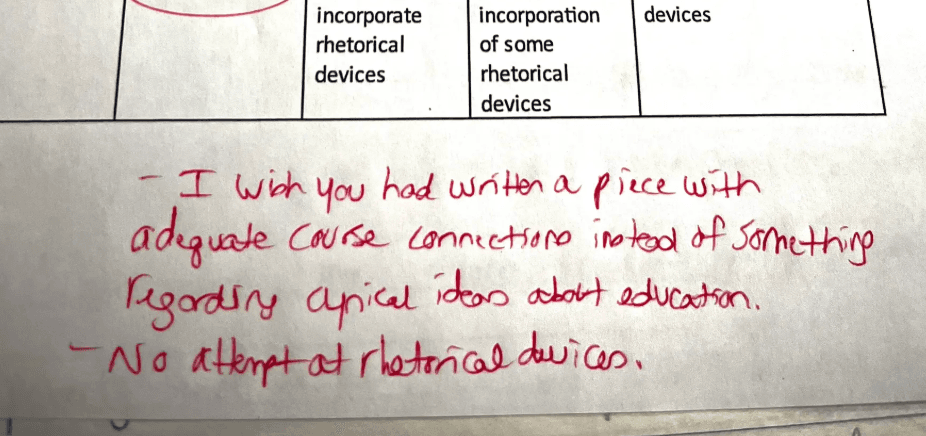 incorporate
rhetorical
devices
incorporation
of some
rhetorical
devices
devices
- I wish you had written a piece with
adequate course connections instead of something
regarding cynical ideas about education.
- No attempt at rhetorical devices.